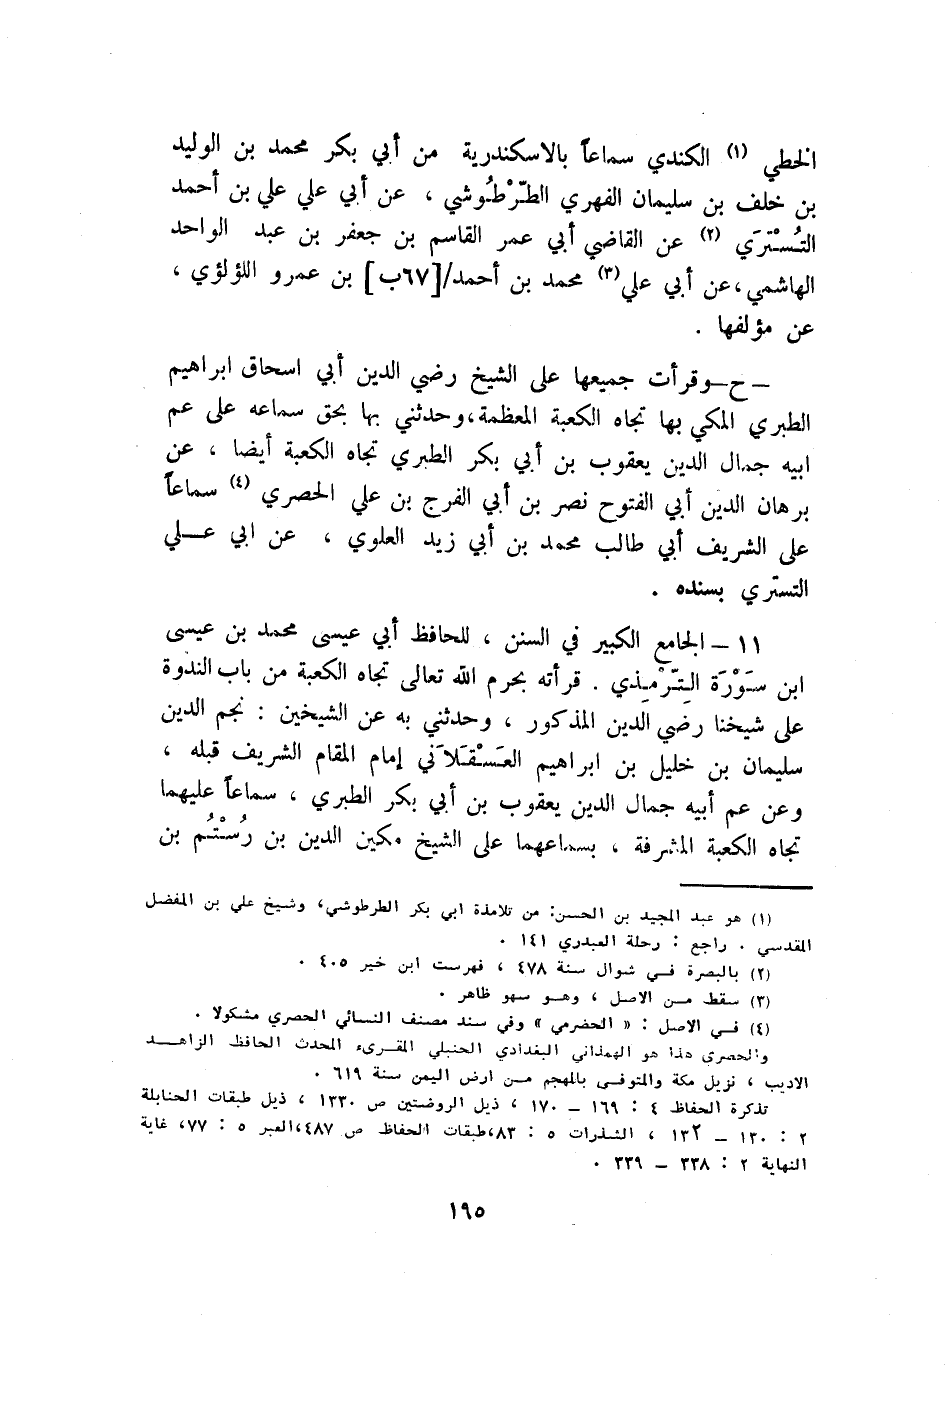 الخطي (١) الكندي سماعاً بالاسكندرية من أبي بكر محمد بن الوليد
بن خلف بن سليمان الفهري الطّرْطُوشي ، عن أبي علي علي بن أحمد
التُسْتَرَي (٢) عن القاضي أبي عمر القاسم بن جعفر بن عبد الواحد
الهاشمي،عن أبي علي(٣) محمد بن أحمد/[٦٧ب] بن عمرو اللؤلؤي ،
عن مؤلفها .
– ح–وقرأت جميعها على الشيخ رضي الدين أبي اسحاق ابراهيم
الطبري المكي بها تجاه الكعبة المعظمة،وحدثني بها بحق سماعه على عم
ابيه جمال الدين يعقوب بن أبي بكر الطبري تجاه الكعبة أيضا ، عن
برهان الدين أبي الفتوح نصر بن أبي الفرج بن علي الحصري (٤) سماعاً
على الشريف أبي طالب محمد بن أبي زيد العلوي ، عن ابي عــلي
التستري بسنده .
١١ – الجامع الكبير في السنن ، للحافظ أبي عيسى محمد بن عيسى
ابن سَوْرَة التِـّرْمِـذي . قرأته بحرم الله تعالى تجاه الكعبة من باب الندوة
على شيخنا رضي الدين المذكور ، وحدثني به عن الشيخين : نجم الدين
سليمان بن خليل بن ابراهيم العَسْقَلَاَني إمام المقام الشريف قبله ،
وعن عم أبيه جمال الدين يعقوب بن أبي بكر الطبري ، سماعاً عليهما
تجاه الكعبة المشرفة ، بسماعهما على الشيخ مكين الدين بن رُسْتُم بن
(١) هو عبد المجيد بن الحسن: من تلامذة ابي بكر الطرطوشي، وشيخ علي بن المفضل
المقدسي . راجع : رحلة العبدري ١٤١ .
(٢) بالبصرة فـي شوال سنة ٤٧٨ ، فهرست ابن خير ٤٠٥ .
(٣) سقط مـن الاصل ، وهـو سهو ظاهر .
(٤) فـي الاصل : « الحضرمي » وفي سند مصنف النسائي الحصري مشكولا .
والحصري هذا هو الهمذاني البغدادي الحنبلي المقـرىء المحدث الحافظ الزاهــد
الاديب ، نزيل مكة والمتوفـى بالمهجم مـن ارض اليمن سنة ٦١٩ .
تذكرة الحفاظ ٤ : ١٦٩ – ١٧٠ ، ذيل الروضتين ص ١٣٣٠ ، ذيل طبقات الحنابلة
٢ : ١٣٠ – ١٣٢ ، الشذرات ٥ : ٨٣،طبقات الحفاظ ص ٤٨٧،العبر ٥ : ٧٧، غاية
النهاية ٢ : ٣٣٨ – ٣٣٩ .
١٩٥